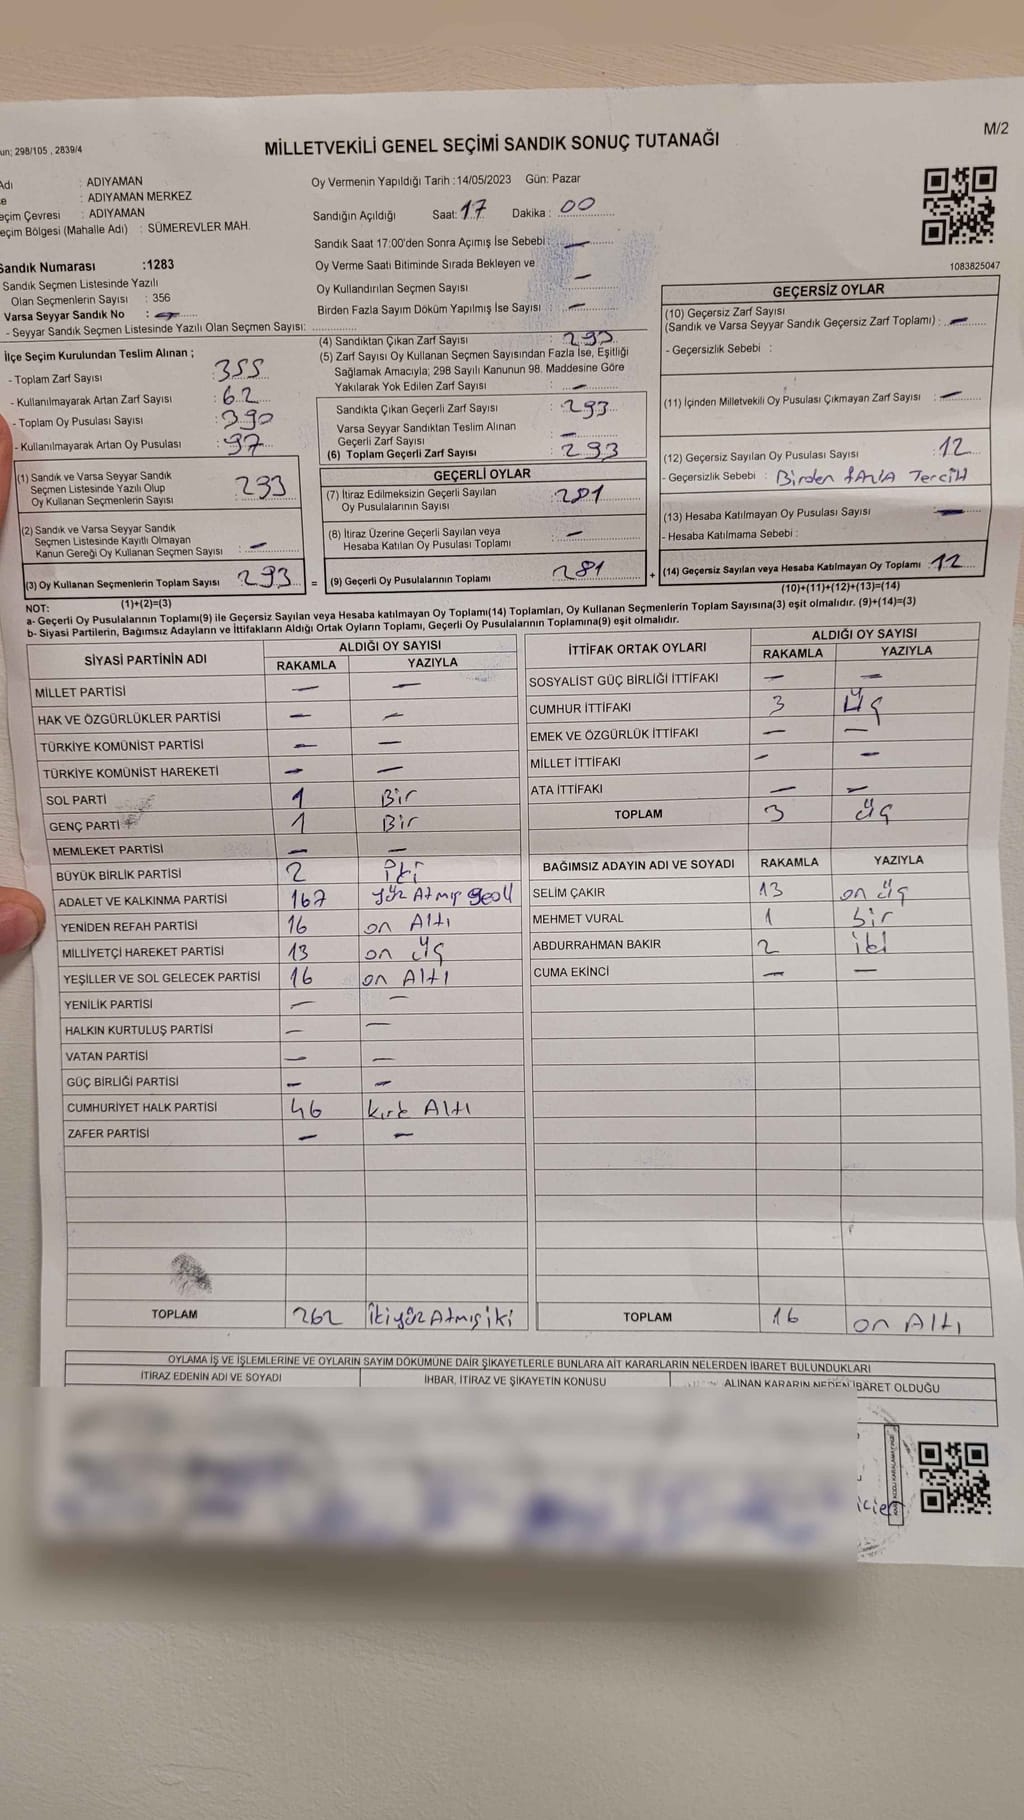 un; 298/105 , 2839/4
MİLLETVEKİLİ GENEL SEÇİMİ SANDIK SONUÇ TUTANAĞI
M/2
Adı : ADIYAMAN
e : ADIYAMAN MERKEZ
eçim Çevresi : ADIYAMAN
eçim Bölgesi (Mahalle Adı) : SÜMEREVLER MAH.
Sandık Numarası :1283
Sandık Seçmen Listesinde Yazılı
Olan Seçmenlerin Sayısı : 356
Varsa Seyyar Sandık No : —
- Seyyar Sandık Seçmen Listesinde Yazılı Olan Seçmen Sayısı: ..............
Oy Vermenin Yapıldığı Tarih :14/05/2023 Gün: Pazar
Sandığın Açıldığı Saat: 17 Dakika : 00
Sandık Saat 17:00'den Sonra Açımış İse Sebebi : —
Oy Verme Saati Bitiminde Sırada Bekleyen ve
Oy Kullandırılan Seçmen Sayısı —
Birden Fazla Sayım Döküm Yapılmış İse Sayısı : —
1083825047
İlçe Seçim Kurulundan Teslim Alınan ;
- Toplam Zarf Sayısı : 355
- Kullanılmayarak Artan Zarf Sayısı : 62
- Toplam Oy Pusulası Sayısı : 390
- Kullanılmayarak Artan Oy Pusulası : 97
(1) Sandık ve Varsa Seyyar Sandık
Seçmen Listesinde Yazılı Olup
Oy Kullanan Seçmenlerin Sayısı 293
(2) Sandık ve Varsa Seyyar Sandık
Seçmen Listesinde Kayıtlı Olmayan
Kanun Gereği Oy Kullanan Seçmen Sayısı : —
(3) Oy Kullanan Seçmenlerin Toplam Sayısı 293 =
(1)+(2)=(3)
(4) Sandıktan Çıkan Zarf Sayısı : 293
(5) Zarf Sayısı Oy Kullanan Seçmen Sayısından Fazla İse, Eşitliği
Sağlamak Amacıyla; 298 Sayılı Kanunun 98. Maddesine Göre
Yakılarak Yok Edilen Zarf Sayısı : —
Sandıkta Çıkan Geçerli Zarf Sayısı : 293
Varsa Seyyar Sandıktan Teslim Alınan
Geçerli Zarf Sayısı : —
(6) Toplam Geçerli Zarf Sayısı : 293
GEÇERLİ OYLAR
(7) İtiraz Edilmeksizin Geçerli Sayılan
Oy Pusulalarının Sayısı : 281
(8) İtiraz Üzerine Geçerli Sayılan veya
Hesaba Katılan Oy Pusulası Toplamı : —
(9) Geçerli Oy Pusulalarının Toplamı : 281 +
GEÇERSİZ OYLAR
(10) Geçersiz Zarf Sayısı
(Sandık ve Varsa Seyyar Sandık Geçersiz Zarf Toplamı) : —
- Geçersizlik Sebebi :
(11) İçinden Milletvekili Oy Pusulası Çıkmayan Zarf Sayısı : —
(12) Geçersiz Sayılan Oy Pusulası Sayısı : 12
- Geçersizlik Sebebi : Birden fAzlA TerciH
(13) Hesaba Katılmayan Oy Pusulası Sayısı : —
- Hesaba Katılmama Sebebi :
(14) Geçersiz Sayılan veya Hesaba Katılmayan Oy Toplamı : 12
(10)+(11)+(12)+(13)=(14)
NOT:
a- Geçerli Oy Pusulalarının Toplamı(9) ile Geçersiz Sayılan veya Hesaba katılmayan Oy Toplamı(14) Toplamları, Oy Kullanan Seçmenlerin Toplam Sayısına(3) eşit olmalıdır. (9)+(14)=(3)
b- Siyasi Partilerin, Bağımsız Adayların ve İttifakların Aldığı Ortak Oyların Toplamı, Geçerli Oy Pusulalarının Toplamına(9) eşit olmalıdır.
SİYASİ PARTİNİN ADI ALDIĞI OY SAYISI
RAKAMLA YAZIYLA
MİLLET PARTİSİ — —
HAK VE ÖZGÜRLÜKLER PARTİSİ — —
TÜRKİYE KOMÜNİST PARTİSİ — —
TÜRKİYE KOMÜNİST HAREKETİ — —
SOL PARTİ 1 Bir
GENÇ PARTİ 1 Bir
MEMLEKET PARTİSİ — —
BÜYÜK BİRLİK PARTİSİ 2 iki
ADALET VE KALKINMA PARTİSİ 167 yüz Atmış
YENİDEN REFAH PARTİSİ 16 on Altı
MİLLİYETÇİ HAREKET PARTİSİ 13 on üç
YEŞİLLER VE SOL GELECEK PARTİSİ 16 on Altı
YENİLİK PARTİSİ — —
HALKIN KURTULUŞ PARTİSİ — —
VATAN PARTİSİ — —
GÜÇ BİRLİĞİ PARTİSİ — —
CUMHURİYET HALK PARTİSİ 46 kırk Altı
ZAFER PARTİSİ — —
TOPLAM 262 ikiyüz Atmış iki
İTTİFAK ORTAK OYLARI ALDIĞI OY SAYISI
RAKAMLA YAZIYLA
SOSYALİST GÜÇ BİRLİĞİ İTTİFAKI — —
CUMHUR İTTİFAKI 3 üç
EMEK VE ÖZGÜRLÜK İTTİFAKI — —
MİLLET İTTİFAKI — —
ATA İTTİFAKI — —
TOPLAM 3 üç
BAĞIMSIZ ADAYIN ADI VE SOYADI RAKAMLA YAZIYLA
SELİM ÇAKIR 13 on üç
MEHMET VURAL 1 bir
ABDURRAHMAN BAKIR 2 iki
CUMA EKİNCİ — —
TOPLAM 16 on Altı
OYLAMA İŞ VE İŞLEMLERİNE VE OYLARIN SAYIM DÖKÜMÜNE DAİR ŞİKAYETLERLE BUNLARA AİT KARARLARIN NELERDEN İBARET BULUNDUKLARI
İTİRAZ EDENİN ADI VE SOYADI İHBAR, İTİRAZ VE ŞİKAYETİN KONUSU ALINAN KARARIN NEDEN İBARET OLDUĞU